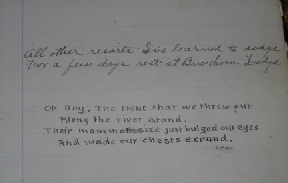 All other resorts I've learned to dodge
For a few days rest at Lodge
Oh Boy! The trout that we threw out
Along the river grand.
Their mammoth size just bulged our eyes
And made our chests expand.